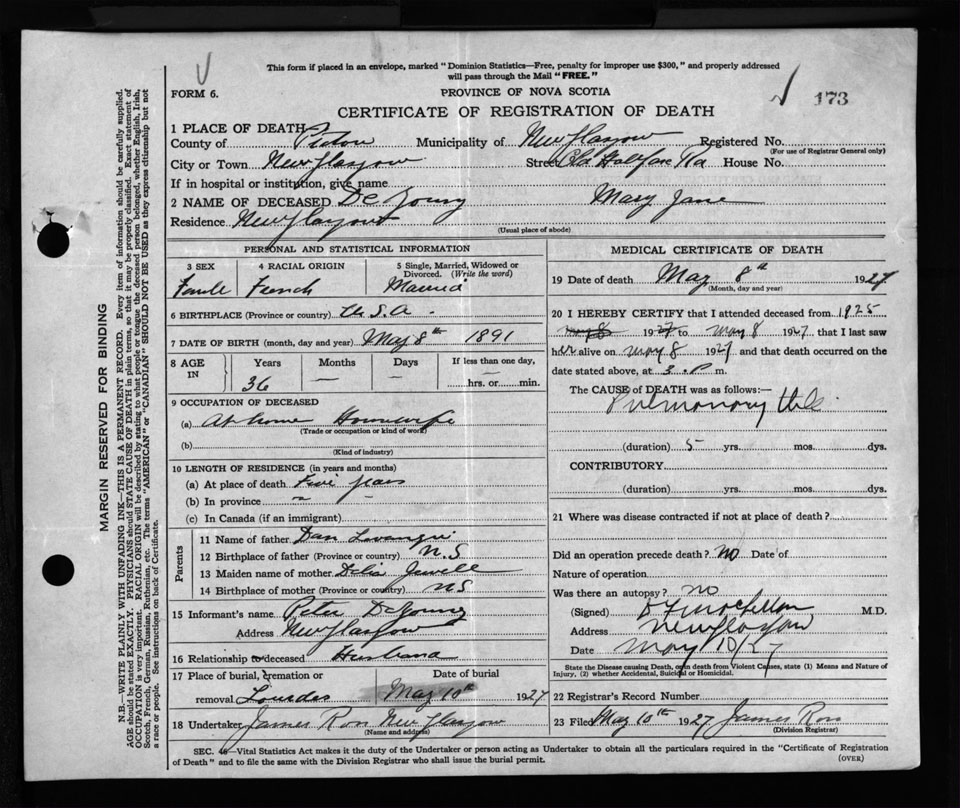 This form if placed in an envelope, marked "Dominion Statistics—Free, penalty for improper use $300," and properly addressed
will pass through the Mail "FREE."
FORM 6.
PROVINCE OF NOVA SCOTIA
173
CERTIFICATE OF REGISTRATION OF DEATH
1 PLACE OF DEATH
County of Pictou Municipality of New Glasgow Registered No.
(For use of Registrar General only)
City or Town New Glasgow Street Old Halifax Rd House No.
If in hospital or institution, give name
2 NAME OF DECEASED De Young Mary Jane
Residence New Glasgow
(Usual place of abode)
PERSONAL AND STATISTICAL INFORMATION
3 SEX 4 RACIAL ORIGIN 5 Single, Married, Widowed or Divorced. (Write the word)
French Married
6 BIRTHPLACE (Province or country) U.S.A.
7 DATE OF BIRTH (month, day and year) May 8th 1891
8 AGE IN Years Months Days If less than one day,
36 — — hrs. or min.
9 OCCUPATION OF DECEASED
(a) At home Housewife
(Trade or occupation or kind of work)
(b)
(Kind of industry)
10 LENGTH OF RESIDENCE (in years and months)
(a) At place of death Five years
(b) In province " "
(c) In Canada (if an immigrant)
Parents
11 Name of father Dan
12 Birthplace of father (Province or country) N.S
13 Maiden name of mother Delia Jewell
14 Birthplace of mother (Province or country) NS
15 Informant's name Peter DeYoung
Address New Glasgow
16 Relationship to deceased Husband
17 Place of burial, cremation or Date of burial
removal Lourdes May 10th 1927
18 Undertaker James Ross New Glasgow
(Name and address)
MEDICAL CERTIFICATE OF DEATH
19 Date of death May 8th 1927
(Month, day and year)
20 I HEREBY CERTIFY that I attended deceased from 1925
May 8 1927 to May 8 1927, that I last saw
her alive on May 8 1927 and that death occurred on the
date stated above, at 3.P m.
The CAUSE of DEATH was as follows:—
Pulmonary
(duration) 5 yrs. mos. dys.
CONTRIBUTORY
(duration) yrs. mos. dys.
21 Where was disease contracted if not at place of death?
Did an operation precede death? NO Date of
Nature of operation
Was there an autopsy? no
(Signed) M.D.
Address New Glasgow
Date May 10/27
State the Disease causing Death, or in death from Violent Causes, state (1) Means and Nature of
Injury, (2) whether Accidental, Suicidal or Homicidal.
22 Registrar's Record Number
23 Filed May 10th 1927 James Ross
(Division Registrar)
SEC. —Vital Statistics Act makes it the duty of the Undertaker or person acting as Undertaker to obtain all the particulars required in the "Certificate of Registration
of Death" and to file the same with the Division Registrar who shall issue the burial permit.
(OVER)
MARGIN RESERVED FOR BINDING
N.B.—WRITE PLAINLY WITH UNFADING INK—THIS IS A PERMANENT RECORD. Every item of information should be carefully supplied.
AGE should be stated EXACTLY. PHYSICIANS should STATE CAUSE OF DEATH in plain terms, so that it may be properly classified. Exact statement of
OCCUPATION is very important. RACIAL ORIGIN will be described by stating to what people or tongue the deceased person belonged, whether English, Irish,
Scotch, French, German, Russian, Ruthenian, etc. The terms "AMERICAN" or "CANADIAN" SHOULD NOT BE USED as they express citizenship but not
a race or people. See instructions on back of Certificate.